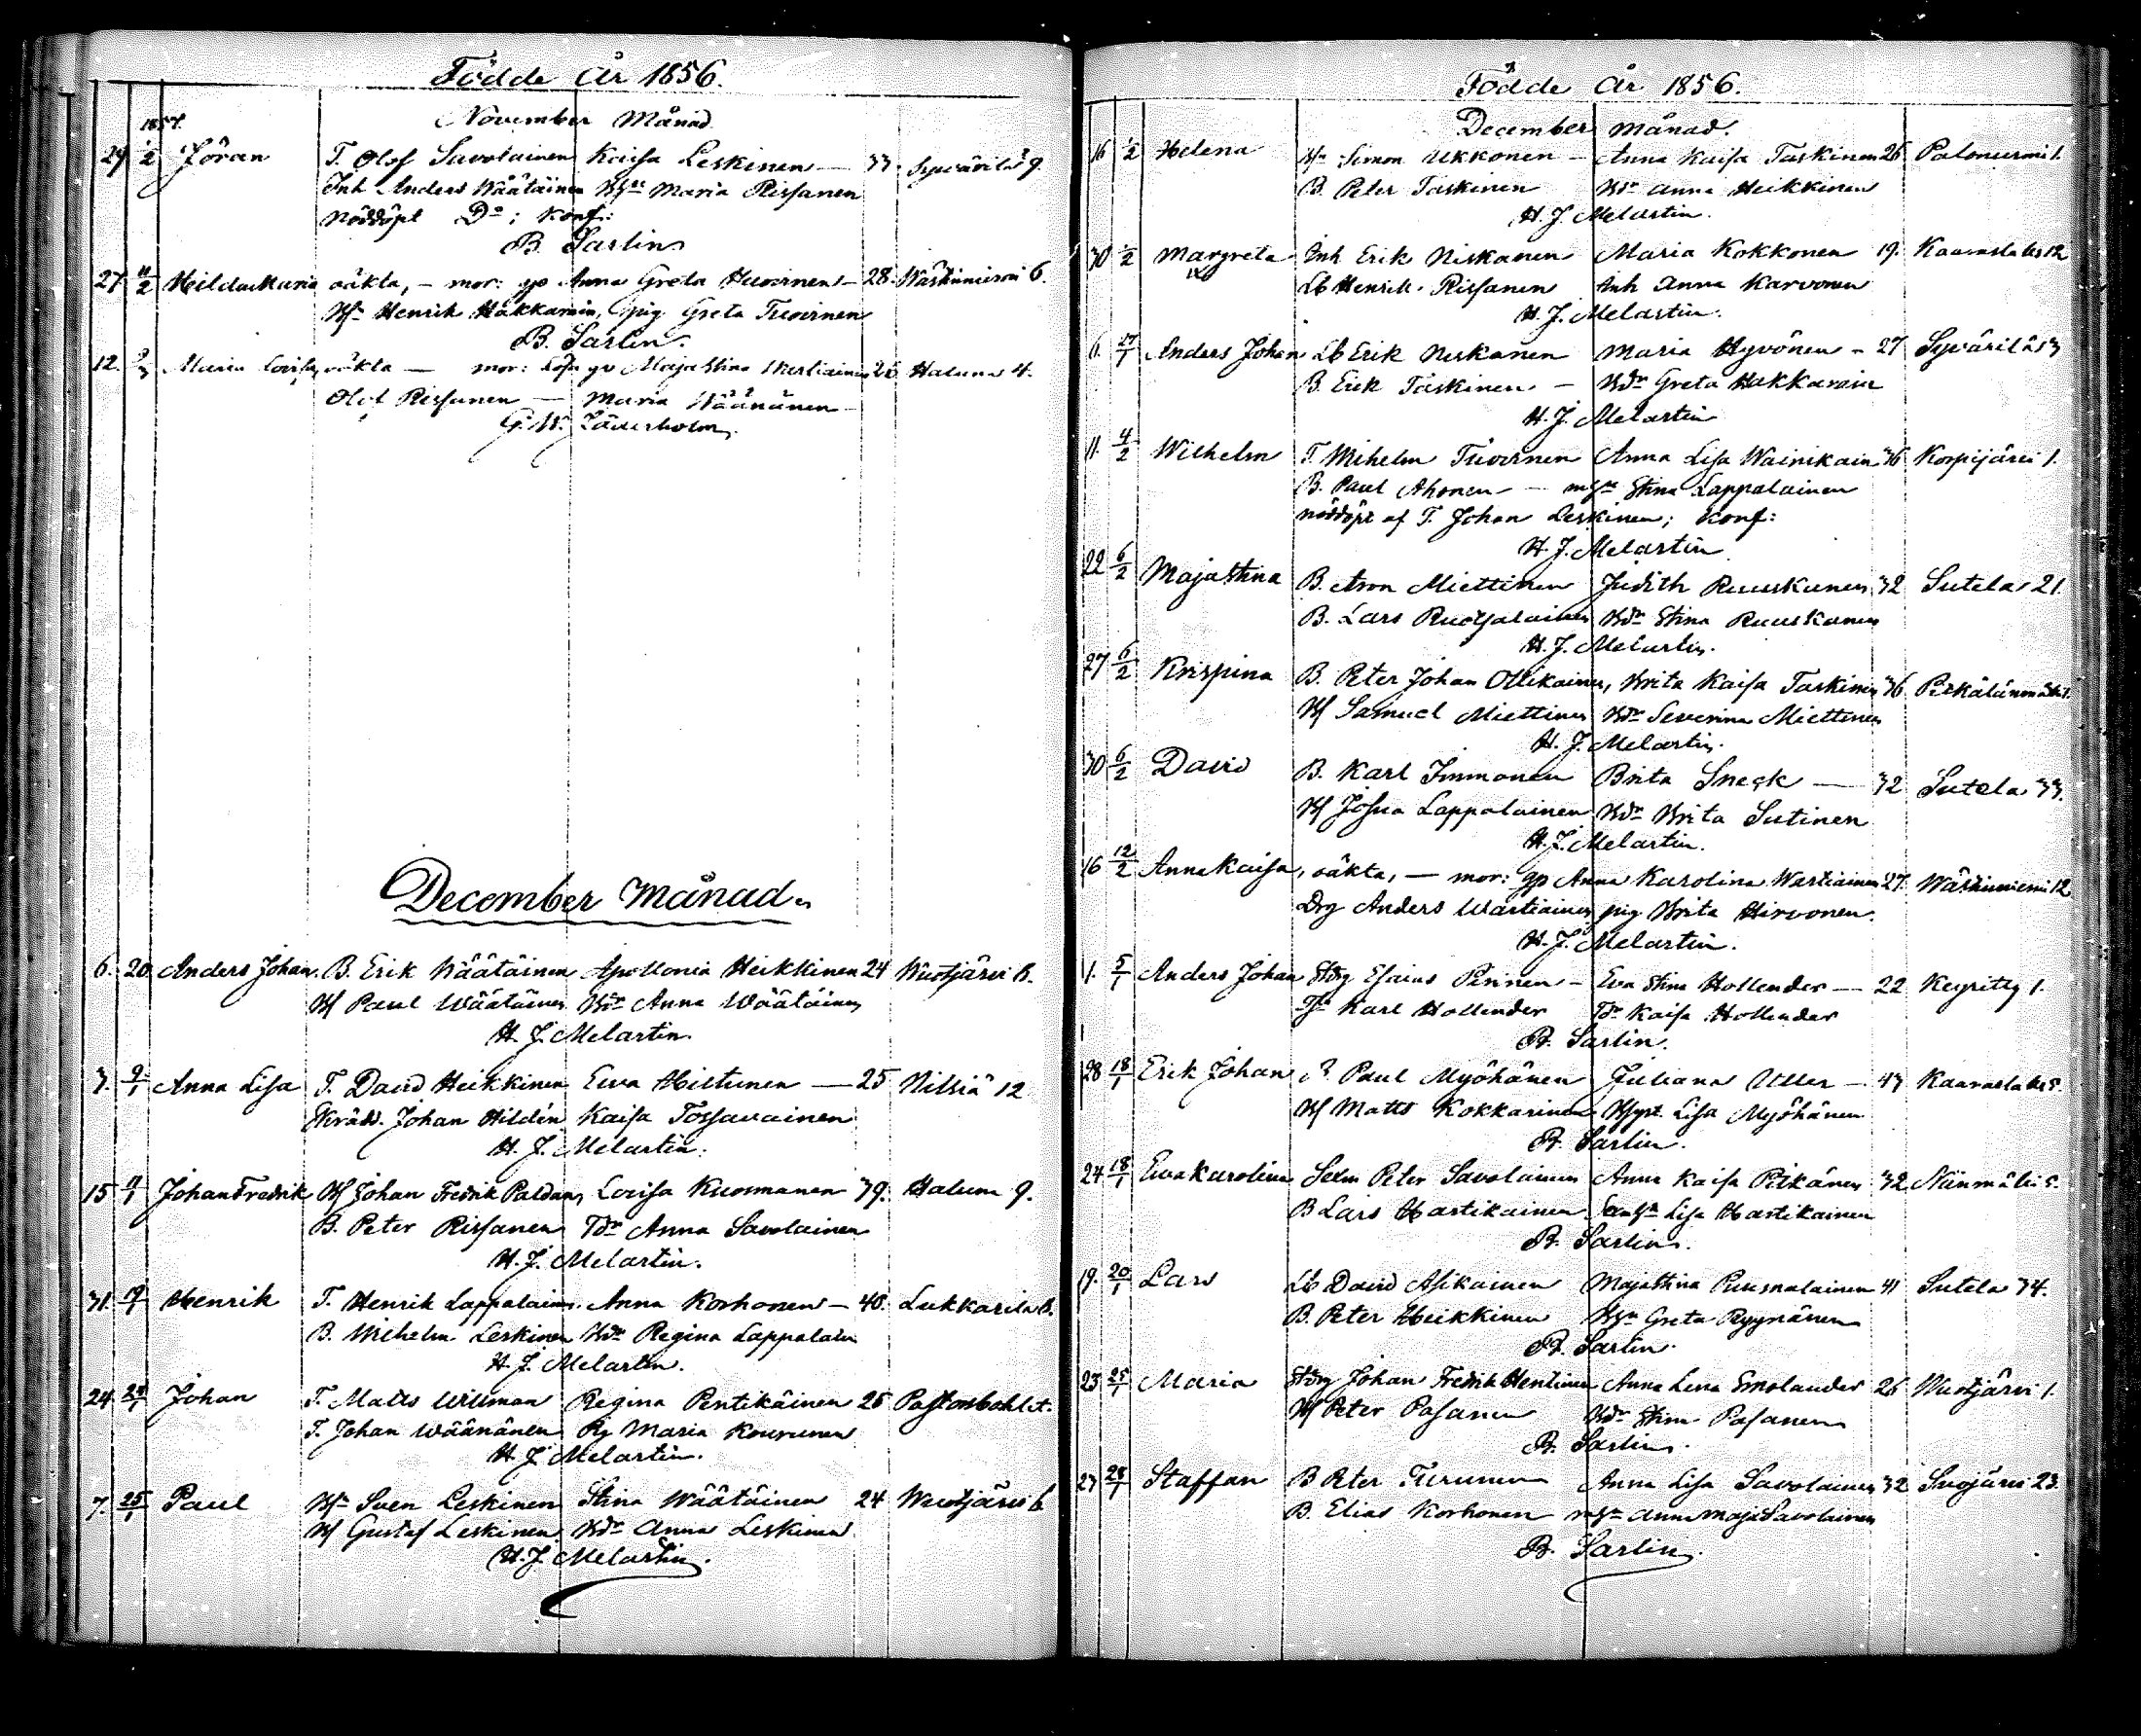 Födde År 1856.
November Månad
1857.
29 1/2 Jöran T. Olof Savolainen Kaisa Leskinen — 33. Syväriläs 9.
Inh Anders Wäätäinen Maria Rissanen
nöddöpt D:o; Konf:
B. Sarlin
27. 11/2 Hilda Maria oäkta, — mor: gp Anna Greta Huovinen — 28. Wästinniemi 6.
Henrik Hakkarain, pig Greta Tuovinen
B. Sarlin.
12. Maria Lovisa, oäkta — mor: Maja Stina 26 Haluna 4.
Olof Rissanen — Maria Wäänänen
G. W. Zäuerholm.
December Månad.
6. 20 Anders Johan. B. Erik Wäätäinen Apollonia Heikkinen 24 Wuotjärvi 13.
Paul Wäätäinen Anna Wäätäinen
H. J. Melartin.
3. 9/1 Anna Lisa T. David Heikkinen Ewa Hiltunen — 25 Nilsiä 12
Skräd. Johan Hildén Kaisa Tossavainen
H. J. Melartin.
15 11/1 Johan Fredrik Johan Fredrik Paldan, Lovisa Kuosmanen 39. Haluna 9.
B. Peter Rissanen Anna Savolainen
H. J. Melartin.
31. Henrik T. Henrik Lappalain. Anna Korhonen — 40. Lukkarila
B. Wilhelm Leskinen Regina Lappalain
H. J. Melartin.
24. Johan T. Matts Willman Regina Pentikäinen 26
T. Johan Wäänänen Pig Maria Kourunen
H. J. Melartin.
7. 25/1 Paul Sven Leskinen Stina Wäätäinen 24 Wuotjärvi 6
Gustaf Leskinen Anna Leskinen
H. J. Melartin.
Födde År 1856.
December månad.
16 1/2 Helena Simon Ukkonen — Anna Kaisa Taskinen 26 Paloneurmi 1.
B. Peter Taskinen Anna Heikkinen
H. J. Melartin.
30 1/2 Margreta Inh Erik Niskanen Maria Kokkonen 19. Kaarastalax 12
Lb Henrik Rissanen Inh Anna Karvonen
H. J. Melartin.
6. 17/1 Anders Johan Lb Erik Niskanen Maria Hyvönen — 27 Syväriläs 3
B. Erik Taskinen — Greta Hakkarain
H. J. Melartin
11. 4/2 Wilhelm T. Wilhelm Tuovinen Anna Lisa Wainikain 36 Korpijärvi 1.
B. Paul Ahonen — Stina Lappalainen
nöddöpt af T. Johan Leskinen; Konf:
H. J. Melartin
22 6/2 Maja Stina B. Aron Miettinen Judith Ruuskanen 32 Sutela 21.
B. Lars Ruotsalainen Stina Ruuskanen
H. J. Melartin.
27 6/2 Krispina B. Peter Johan Ollikainen, Brita Kaisa Taskinen 36.
Samuel Miettinen Severina Miettinen
H. J. Melartin.
30 6/2 David B. Karl Immonen Brita Sneck — 32 Sutela 33.
Josua Lappalainen Brita Sutinen
H. J. Melartin.
16 12/2 Anna Kaisa, oäkta, — mor: gp Anna Karolina Wartiainen 27. Wästinniemi 12
Drg Anders Wartiainen pig Brita Hirvonen.
H. J. Melartin.
1. 5/1 Anders Johan Esaias Pennen — Eva Stina Hollender — 22 Keyritty 1.
Karl Hollender Kaisa Hollender
B. Sarlin.
28 18/1 Erik Johan Paul Myöhänen Juliana Utter — 43 Kaaraslax
Matts Kokkarinen Lisa Myöhänen
B. Sarlin.
24 18/1 Ewa Karolina Peter Savolainen Anna Kaisa Pitkänen 32 Niinmäki 5.
B Lars Hartikainen Lisa Hartikainen
B. Sarlin.
19. 20/1 Lars Lb David Asikainen Maja Stina Puusnalainen 41 Sutela 34.
B. Peter Heikkinen Greta Ryynänen
B. Sarlin.
23 25/1 Maria Johan Fredrik Hentinen Anna Lena Smolander 26 Wuotjärvi 1.
Peter Pasanen Stina Pasanen
B. Sarlin.
23 28/1 Staffan B Peter Turunen Anna Lisa Savolainen 32 Suojärvi 23.
B. Elias Korhonen Anna Maja Savolainen
B. Sarlin.